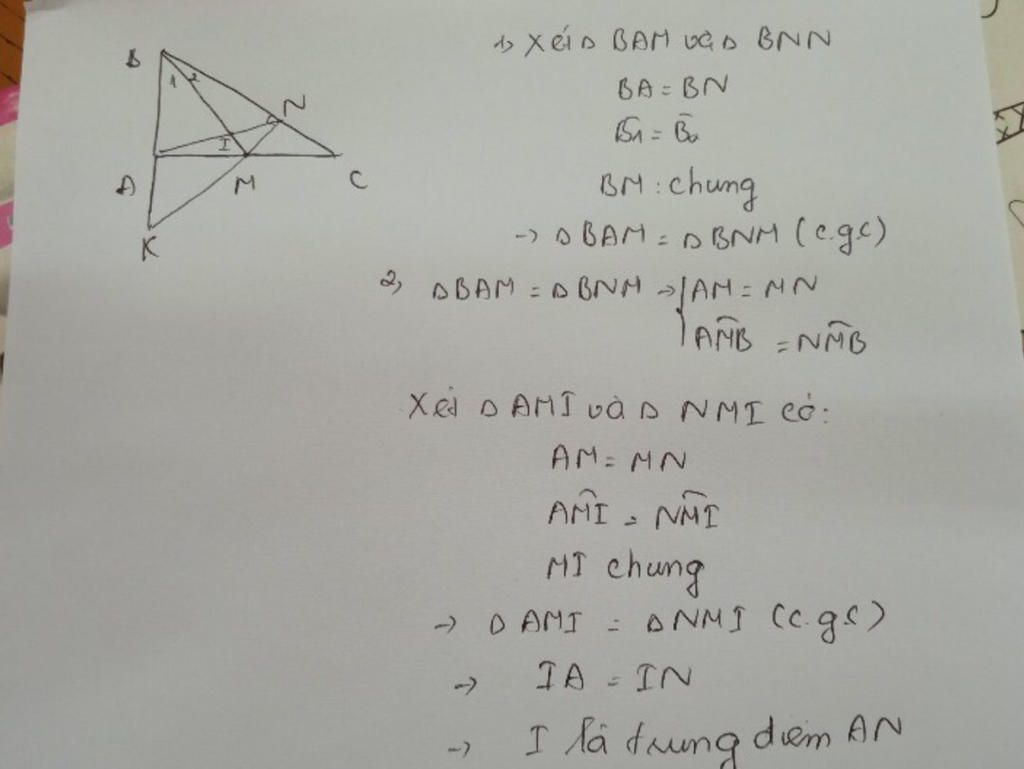 B
1 2
N
I
A
M
C
K
1) Xét Δ BAM và Δ BNN
BA = BN
B1 = B2
BM : chung
-> Δ BAM = Δ BNM (c.g.c)
2, Δ BAM = Δ BNM -> { AM = MN
AMB = NMB
Xét Δ AMI và Δ NMI có:
AM = MN
AMI = NMI
MI chung
-> Δ AMI = Δ NMI (c.g.c)
-> IA = IN
-> I là trung điểm AN